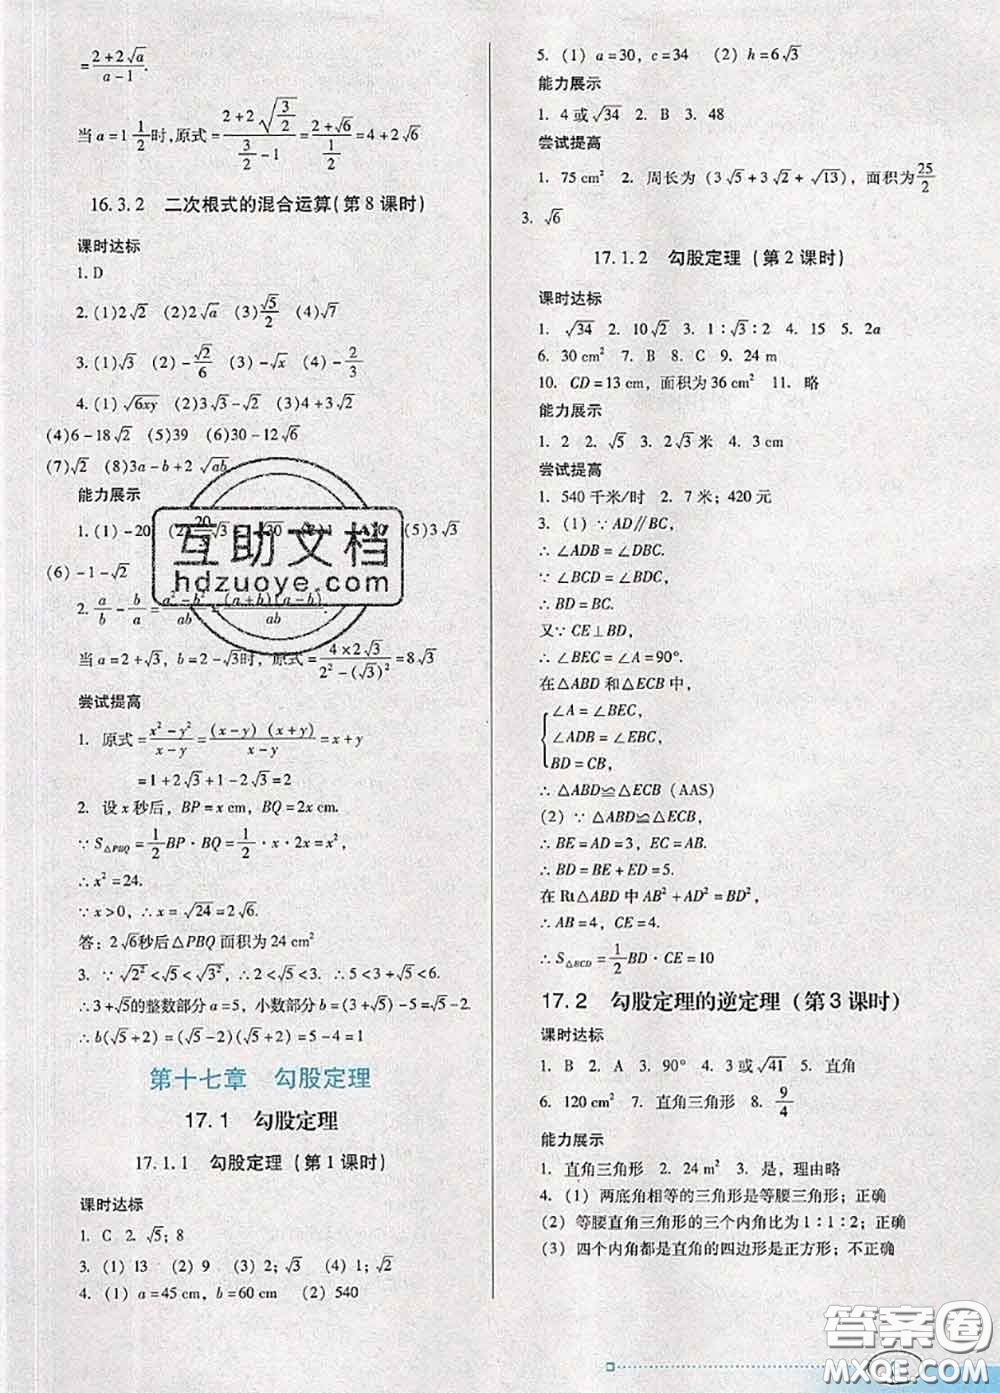 =(2+2√a)/(a-1).
当 a=1 1/2 时,原式=(2+2√(3/2))/(3/2-1)=(2+√6)/(1/2)=4+2√6
16.3.2 二次根式的混合运算(第8课时)
课时达标
1. D
2. (1)2√2 (2)2√a (3)√5/2 (4)√7
3. (1)√3 (2)-√2/6 (3)-√x (4)-2/3
4. (1)√6xy (2)3√3-√2 (3)4+3√2
(4)6-18√2 (5)39 (6)30-12√6
(7)√2 (8)3a-b+2√ab
能力展示
1. (1)-20 (2) 20 (5)3√3
(6)-1-√2
2. a/b-b/a=(a²-b²)/ab=(a+b)(a-b)/ab.
当 a=2+√3, b=2-√3时,原式=4×2√3/(2²-(√3)²)=8√3
尝试提高
1. 原式=(x²-y²)/(x-y)=(x-y)(x+y)/(x-y)=x+y
=1+2√3+1-2√3=2
2. 设 x 秒后, BP=x cm, BQ=2x cm.
∵S△PBQ=1/2BP·BQ=1/2·x·2x=x²,
∴x²=24.
∵x>0,∴x=√24=2√6.
答: 2√6秒后△PBQ 面积为 24 cm²
3. ∵√2²<√5<√3²,∴2<√5<3. ∴5<3+√5<6.
∴3+√5的整数部分 a=5, 小数部分 b=(3+√5)-5=√5-2.
∴b(√5+2)=(√5-2)(√5+2)=5-4=1
第十七章 勾股定理
17.1 勾股定理
17.1.1 勾股定理(第1课时)
课时达标
1. C 2. √5; 8
3. (1) 13 (2) 9 (3) 2; √3 (4) 1; √2
4. (1) a=45 cm, b=60 cm (2) 540
5. (1) a=30, c=34 (2) h=6√3
能力展示
1. 4 或√34 2. B 3. 48
尝试提高
1. 75 cm² 2. 周长为 (3√5+3√2+√13), 面积为25/2
3. √6
17.1.2 勾股定理(第2课时)
课时达标
1. √34 2. 10√2 3. 1∶√3∶2 4. 15 5. 2a
6. 30 cm² 7. B 8. C 9. 24 m
10. CD=13 cm, 面积为 36 cm² 11. 略
能力展示
1. 2 2. √5 3. 2√3 米 4. 3 cm
尝试提高
1. 540 千米/时 2. 7 米; 420 元
3. (1) ∵AD∥BC,
∴∠ADB=∠DBC.
∵∠BCD=∠BDC,
∴BD=BC.
又∵CE⊥BD,
∴∠BEC=∠A=90°.
在△ABD 和△ECB 中,
∠A=∠BEC,
∠ADB=∠EBC,
BD=CB,
∴△ABD≌△ECB (AAS)
(2) ∵△ABD≌△ECB,
∴BE=AD=3, EC=AB.
∴BD=BE+ED=5.
在 Rt△ABD 中 AB²+AD²=BD²,
∴AB=4, CE=4.
∴S△BCD=1/2BD·CE=10
17.2 勾股定理的逆定理(第3课时)
课时达标
1. B 2. A 3. 90° 4. 3 或√41 5. 直角
6. 120 cm² 7. 直角三角形 8. 9/4
能力展示
1. 直角三角形 2. 24 m² 3. 是, 理由略
4. (1) 两底角相等的三角形是等腰三角形; 正确
(2) 等腰直角三角形的三个内角比为 1∶1∶2; 正确
(3) 四个内角都是直角的四边形是正方形; 不正确
互助文档
hdzuoye.com
答案圈
MXQE.COM